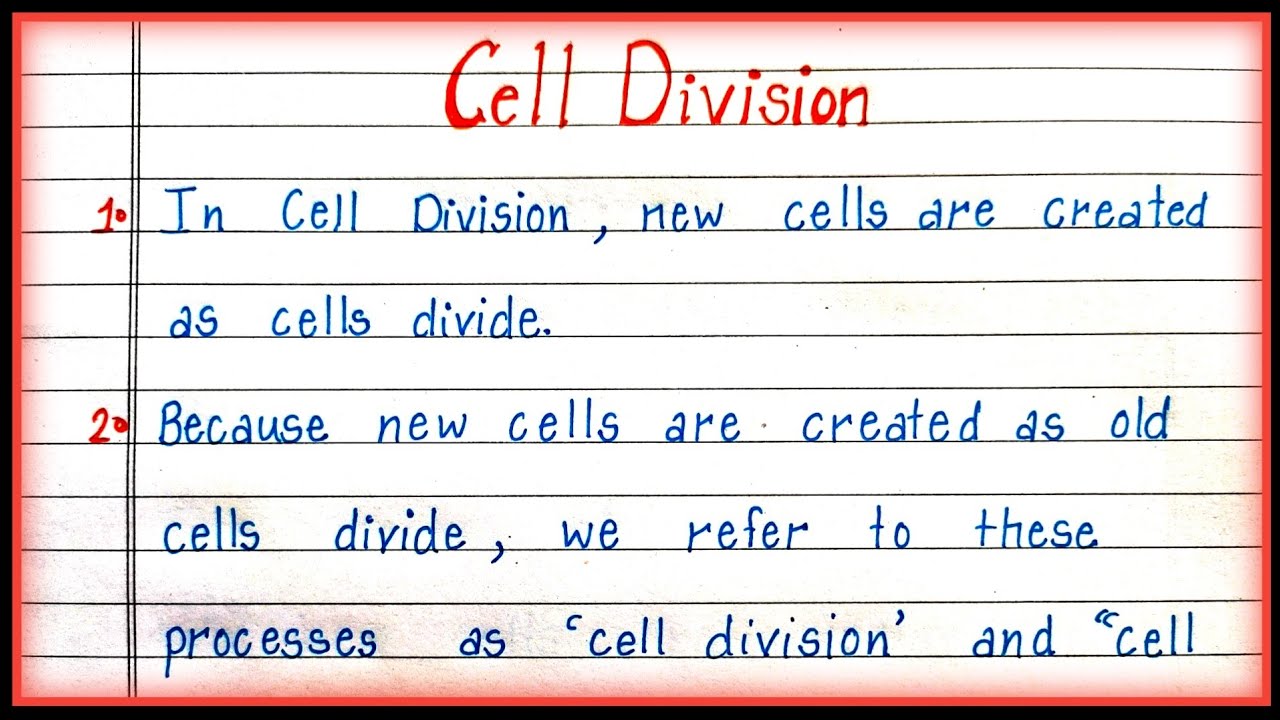 Cell Division
1. In Cell Division, new cells are created
as cells divide.
2. Because new cells are created as old
cells divide, we refer to these
processes as ‘cell division’ and “cell